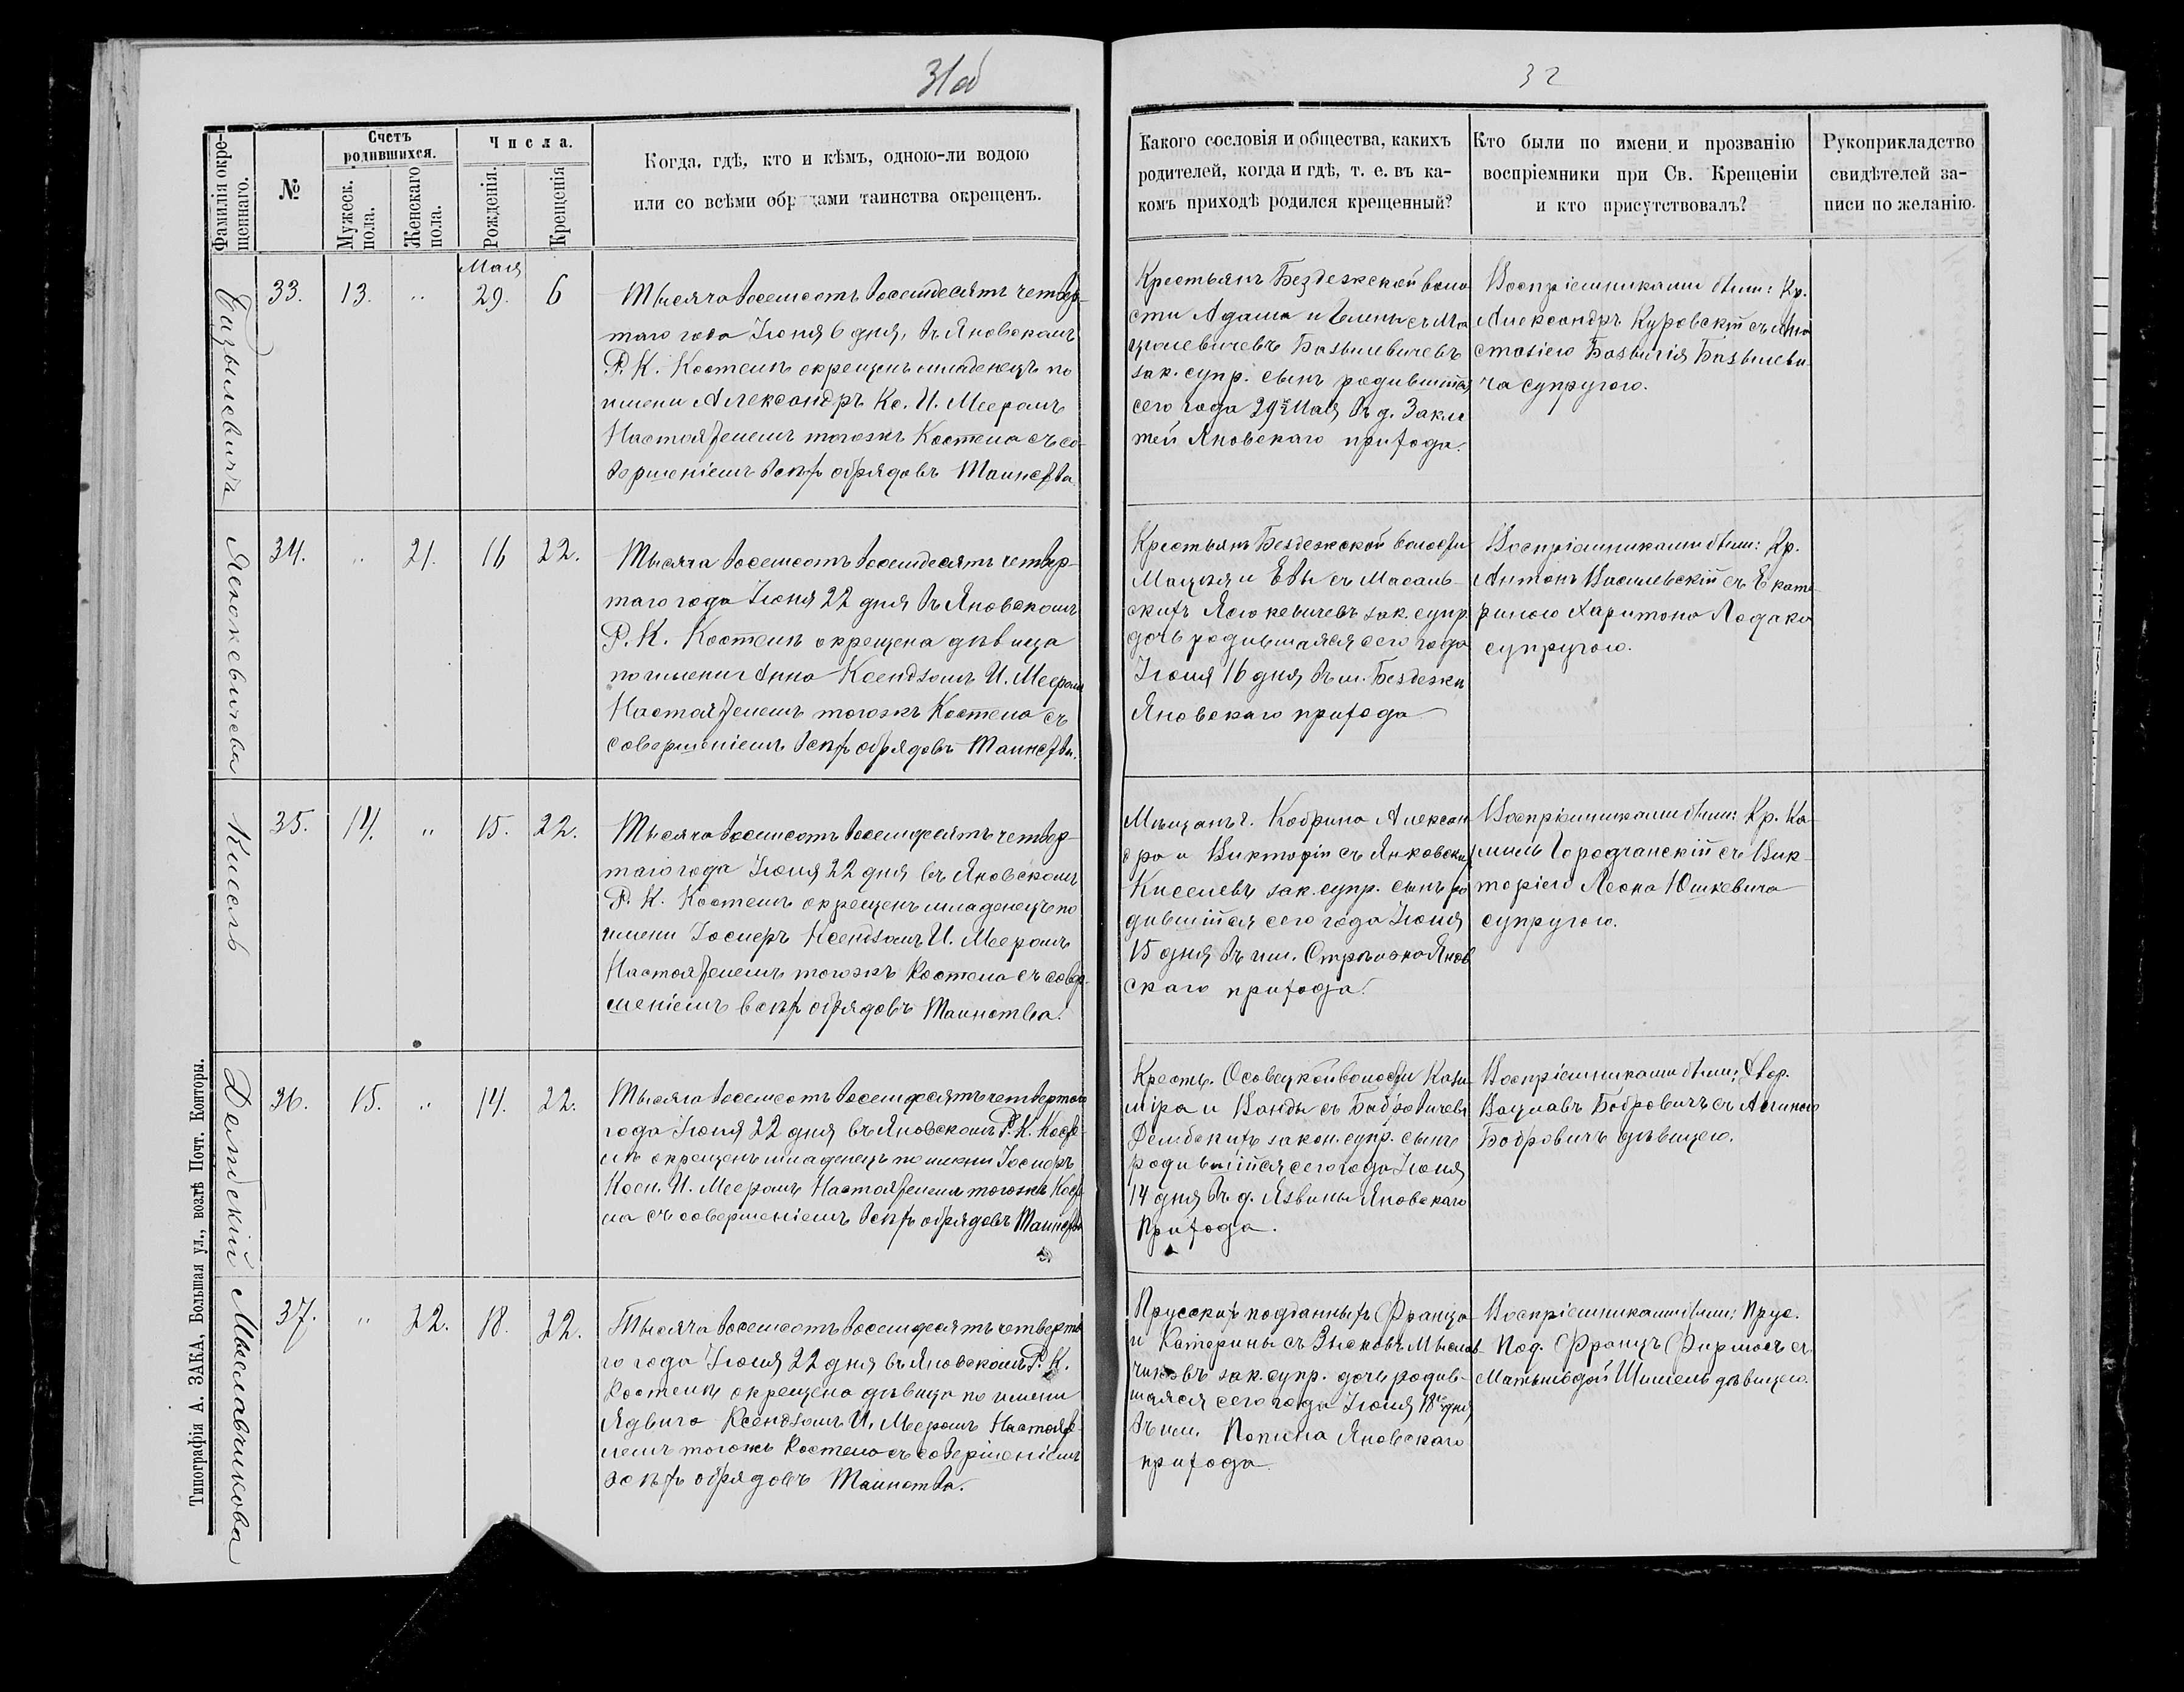 31об
32
Фамилія окрещеннаго.
№
Счетъ родившихся.
Мужеск. пола.
Женскаго пола.
Числа.
Рожденія.
Крещенія
Когда, гдѣ, кто и кѣмъ, одною-ли водою
или со всѣми обрядами таинства окрещенъ.
Какого сословія и общества, какихъ
родителей, когда и гдѣ, т. е. въ ка-
комъ приходѣ родился крещенный?
Кто были по имени и прозванію
воспріемники при Св. Крещеніи
и кто присутствовалъ?
Рукоприкладство
свидѣтелей за-
писи по желанію.
Базылевичъ
33.
13.
"
Мая
29.
6
Тысяча восемсотъ восемдесятъ четвер-
таго года Іюня 6 дня, въ Яновскомъ
Р. К. Костелѣ окрещенъ младенецъ по
имени Александръ Кс. И. Мееромъ
Настоятелемъ тогожъ Костела съ со-
вершеніемъ всѣхъ обрядовъ Таинства.
Крестьянъ Бездежской воло
сти Адама и Елены съ Ма
Базылевичевъ
зак. супр. сынъ родившійся
сего года 29го Мая въ д.
Яновскаго прихода.
Воспріемниками были: Кр.
Александръ Куровскій съ Ана
стасіею Базылія Базылеви-
ча супругою.
Ясюкевичева
34.
"
21.
16
22.
Тысяча восемсотъ восемдесятъ четвер-
таго года Іюня 22 дня въ Яновскомъ
Р. К. Костелѣ окрещена дѣвица
по имени Анна Ксендзомъ И. Мееромъ
Настоятелемъ тогожъ Костела съ
совершеніемъ всѣхъ обрядовъ Таинства.
Крестьянъ Бездежской волости
Мацѣя и Евы съ Масаль-
скихъ Ясюкевичевъ зак. супр.
дочь родившаяся сего года
Іюня 16 дня въ м. Бездежѣ
Яновскаго прихода
Воспріемниками были: Кр.
Антонъ Василевскій съ Екате
риною Харитона Лодака
супругою.
Кисель
35.
14.
"
15.
22.
Тысяча восемсотъ восемдесятъ четвер-
таго года Іюня 22 дня въ Яновскомъ
Р. К. Костелѣ окрещенъ младенецъ по
имени Іосифъ Ксендзомъ И. Мееромъ
Настоятелемъ тогожъ Костела съ совер-
шеніемъ всѣхъ обрядовъ Таинства.
Мѣщанъ г. Кобрина Алексан
дра и Викторіи съ Янковскихъ
Киселевъ зак. супр. сынъ ро
дившійся сего года Іюня
15 дня въ им. Янов
скаго прихода.
Воспріемниками были: Кр. Ка-
милъ Городчанскій съ Вик-
торіею Леона Юшкевича
супругою.
Дембскій
36.
15.
"
14.
22.
Тысяча восемсотъ восемдесятъ четвертаго
года Іюня 22 дня въ Яновскомъ Р. К. Косте-
лѣ окрещенъ младенецъ по имени Іосифъ
Ксен. И. Мееромъ Настоятелемъ тогожъ Косте
ла съ совершеніемъ всѣхъ обрядовъ Таинства
Крестъ. Осовецкой волости Кази-
міра и Ванды съ Бобровичевъ
Дембскихъ закон. супр. сынъ
родившійся сего года Іюня
14 дня въ д. Язвины Яновскаго
Прихода.
Воспріемниками были: Двор.
Вацлавъ Бобровичъ съ
Бобровичъ дѣвицею.
Мыславчикова
37.
"
22.
18.
22.
Тысяча восемсотъ восемдесятъ четверта
го года Іюня 22 дня въ Яновскомъ Р. К.
Костелѣ окрещена дѣвица по имени
Ядвига Ксендзомъ И. Мееромъ Настояте-
лемъ тогожъ Костела съ совершеніемъ
всѣхъ обрядовъ Таинства.
Прусскихъ подданныхъ Франца
и Катерины съ Мыслав-
чиковъ зак. супр. дочь родив-
шаяся сего года Іюня 18го дня
въ им. Яновскаго
прихода.
Воспріемниками были: Прус.
Под. Францъ Фирмосъ съ
Матыльдой Шимель дѣвицею.
Типографія А. ЗАКА, Большая ул., возлѣ Почт. Конторы.